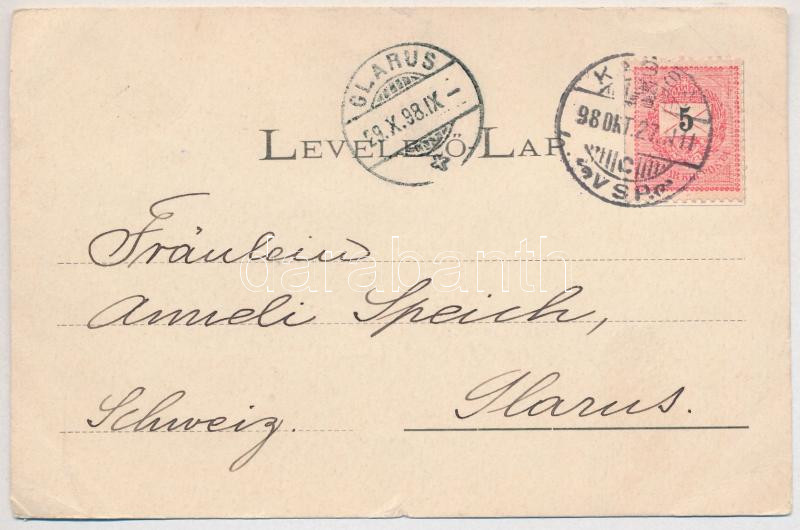 GLARUS
29.X.98.IX
98 OKT. 27
5
LEVELEZŐ-LAP.
darabanth
Fräulein
Anneli Speich,
Schweiz. Glarus.